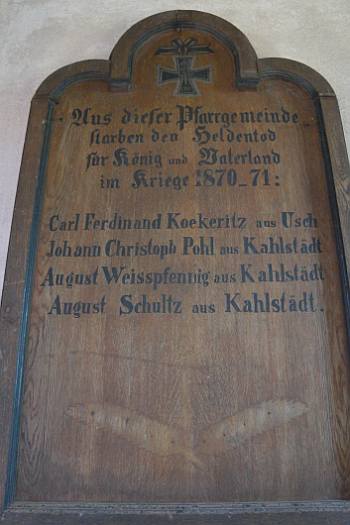 Aus dieser Pfarrgemeinde
starben den Heldentod
für König und Vaterland
im Kriege 1870–71:
Carl Ferdinand Koekeritz aus Usch
Johann Christoph Pohl aus Kahlstädt
August Weisspfennig aus Kahlstädt
August Schultz aus Kahlstädt.